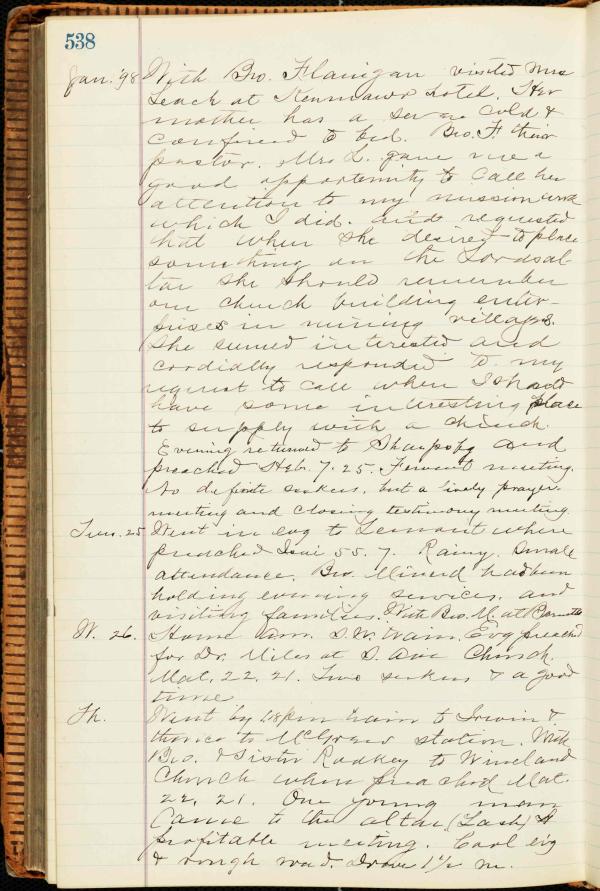 538
Jan. '98 With Bro. Flanigan visited Mrs
Leach at Kenmawr hotel. Her
mother has a severe cold &
confined to bed. Bro. F. their
pastor. Mrs L. gave me a
good opportunity to call her
attention to my mission work
which I did. and requested
that when she desired to place
something on the Lords al-
tar she should remember
our church building enter-
prises in mining villages.
She seemed interested and
cordially responded to my
request to call when I should
have some interesting place
to supply with a church.
Evening returned to Sharpsbg and
preached Heb. 7.25. Fervent meeting.
No definite seekers, but a lively prayer
meeting and closing testimony meeting.
Tues. 25 Went in evg to Lemont where
preached Isai 55. 7. Rainy. Small
attendance. Bro. Minerd had been
holding evening services, and
visiting families. With Bro. M. at
W. 26. Home a.m. S.W. train. Evg preached
for Dr. Miles at S. Ave Church.
Mat. 22. 21. Two seekers & a good
time
Th. Went by train to Irwin &
thence to McGrew station. With
Bro. & Sister Radkey to Wineland
Church where preached Mat.
22. 21. One young man
came to the altar. (Lash) A
profitable meeting. Cool evg
& rough road. drove 1½ m.